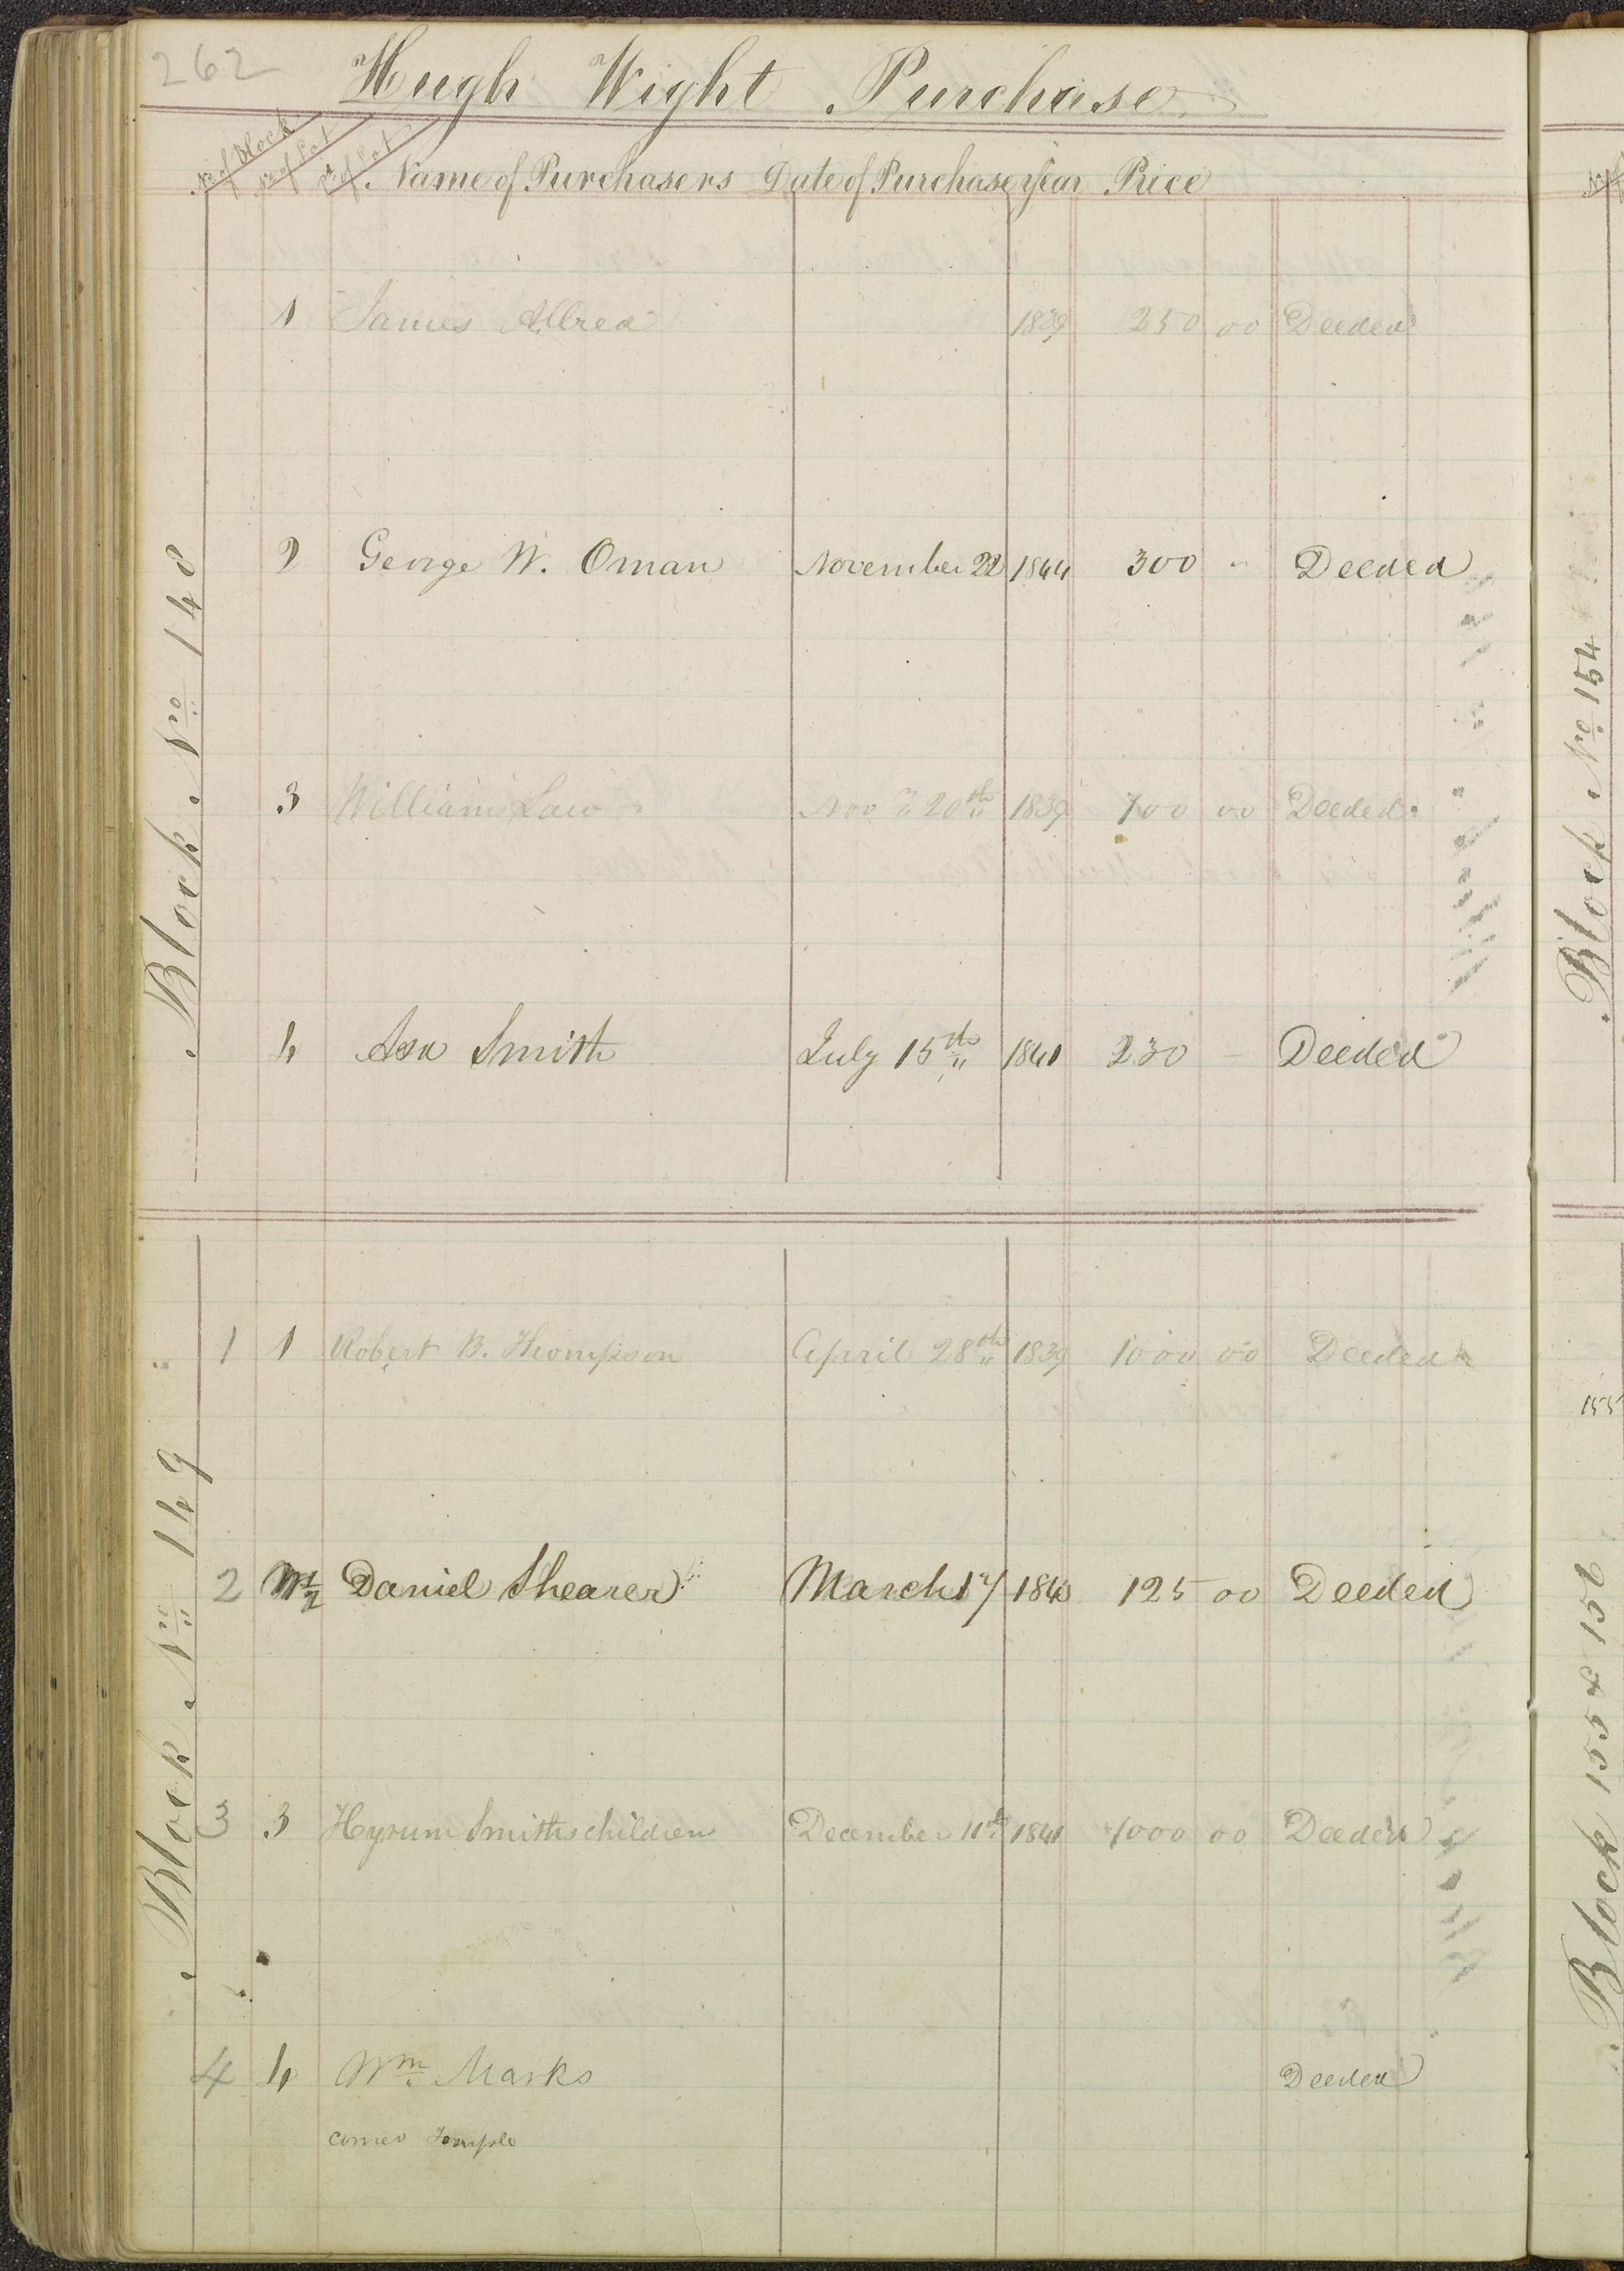 262
Hugh Wight Purchase
No of Block No of Lot Name of Purchasers Date of Purchase Year Price
Block No 148
1 James Allred 1839 250 00 Deeded
2 George W. Oman November 22 1844 300 " Deeded
3 William Law Nov " 20th 1839 700 00 Deeded
4 Asa Smith July 15th 1841 230 — Deeded
Block No 149
1 1 Robert B. Thompson April 28th 1839 1000 00 Deeded
2 W½ Daniel Shearer March 17 1843 125 00 Deeded
3 3 Hyrum Smiths children December 11th 1841 1000 00 Deeded
4 4 Wm Marks Deeded
corner Temple
Block No 154
155
Block 155 & 156